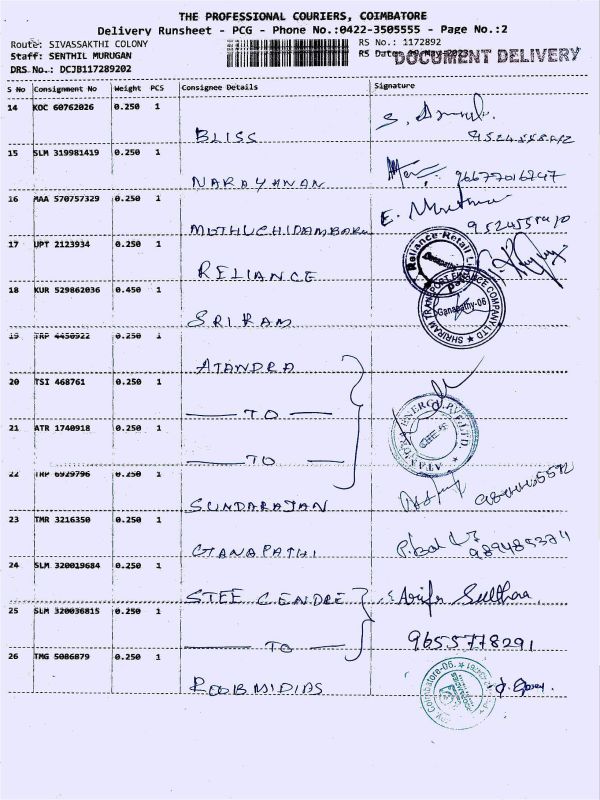 THE PROFESSIONAL COURIERS, COIMBATORE
Delivery Runsheet - PCG - Phone No.:0422-3505555 - Page No.:2
Route: SIVASSAKTHI COLONY
RS No.: 1172892
Staff: SENTHIL MURUGAN
RS Date: 19-May-2023
DOCUMENT DELIVERY
DRS No.: DCJB117289202
S No Consignment No Weight PCS Consignee Details Signature
14 KOC 60762026 0.250 1 BLISS
15 SLM 319981419 0.250 1 NARAYANAN 96677016747
16 MAA 570757329 0.250 1 MUTHUCHIDAMBARM
17 UPT 2123934 0.250 1 RELIANCE
Reliance Retail
18 KUR 529862036 0.450 1 SRIRAM
SHRIRAM TRANSPORT FINANCE COMPANY LTD
Ganapathy-06
19 TRP 4450922 0.250 1 ATANDRA
20 TSI 468761 0.250 1 TO
21 ATR 1740918 0.250 1 TO
ENERGY PVT LTD
22 TRP 6929796 0.250 1 SUNDARAJAN
23 TMR 3216350 0.250 1 GANAPATHI
24 SLM 320019684 0.250 1 STEE CENDRE
25 SLM 320036815 0.250 1 TO 9655778291
26 TMG 5086879 0.250 1 ROOBMIDIAS
Coimbatore-06